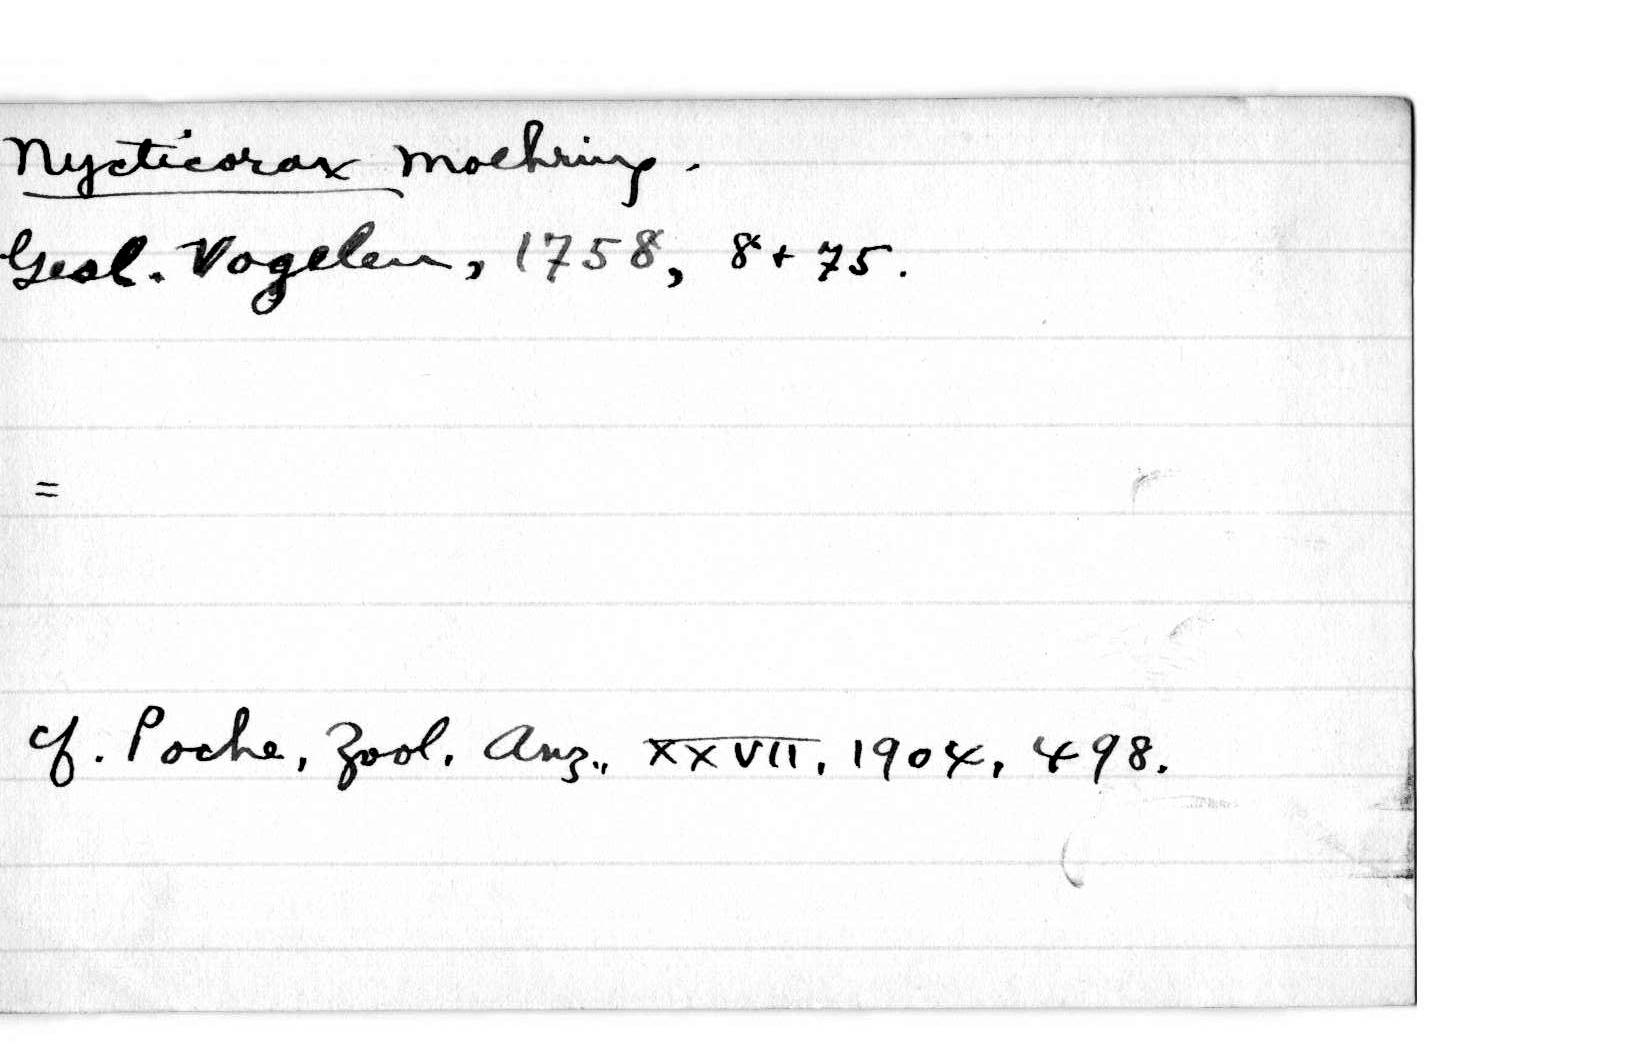 Nycticorax Moehring.
Gesl. Vogelen, 1758, 8 + 75.
=
cf. Poche, Zool. Anz., XXVII, 1904, 498.